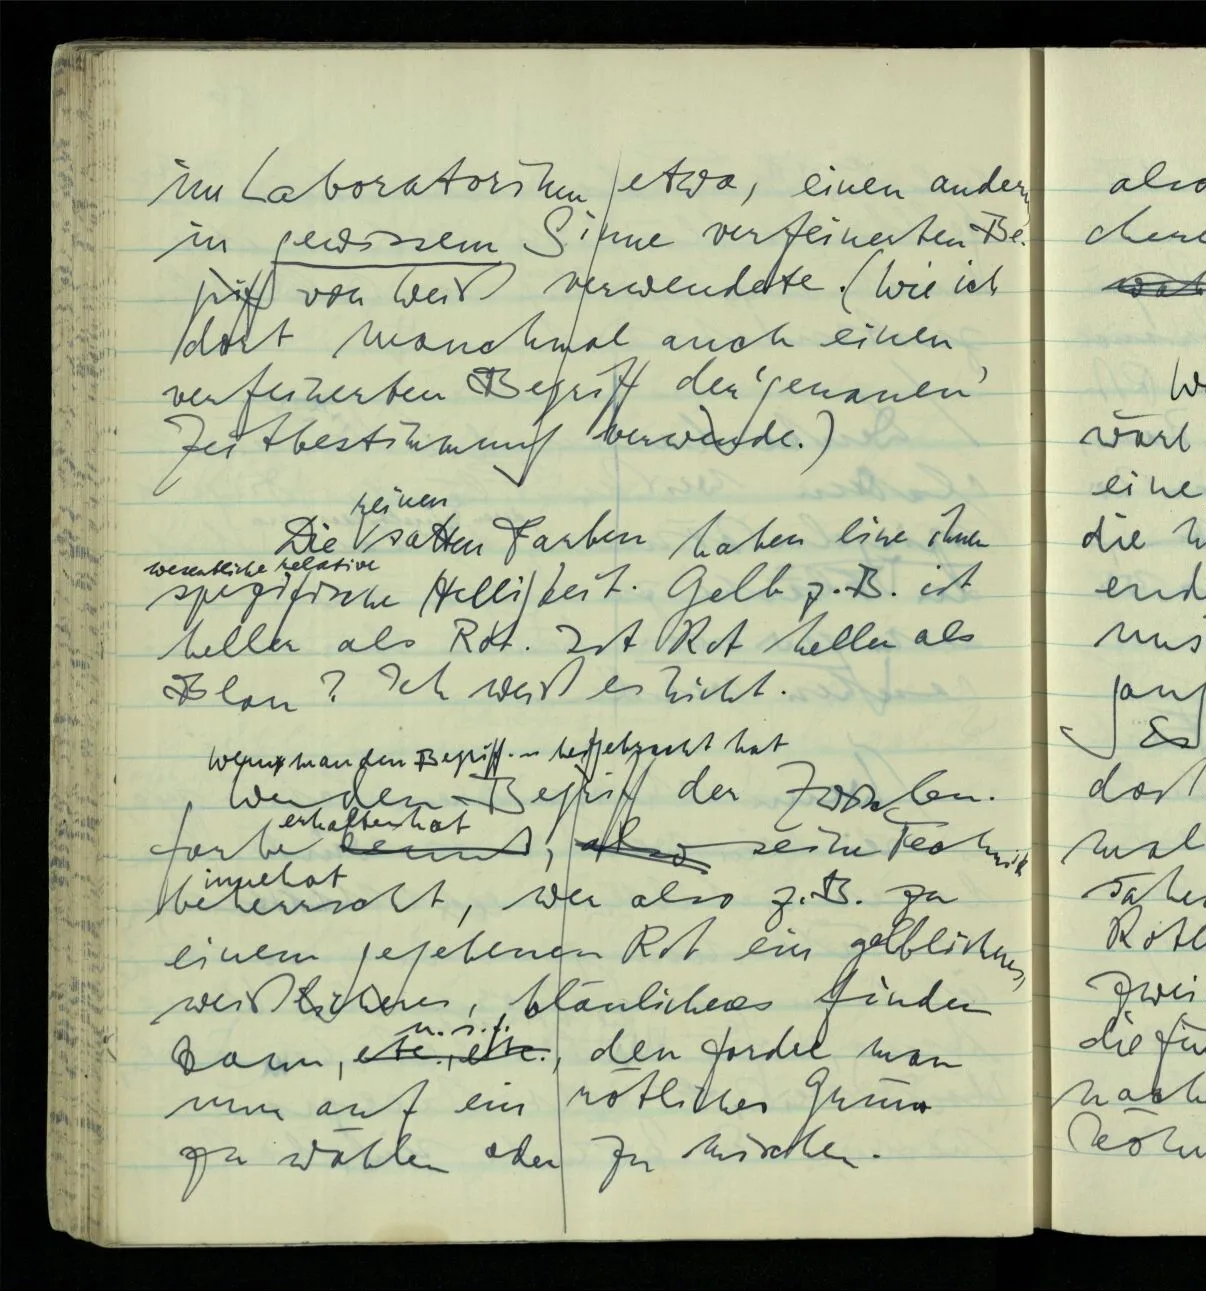 im Laboratorium etwa, einen andern,
in gewissem Sinne verfeinerten Be-
griff von Weiß verwendete. (Wie ich
dort manchmal auch einen
verfeinerten Begriff der 'genauen'
Zeitbestimmung verwende.)
reinen
Die satten Farben haben eine ihnen
wesentliche relative
spezifische Helligkeit. Gelb z.B. ist
heller als Rot. Ist Rot heller als
Blau? Ich weiß es nicht.
wenn man den Begriff beigebracht hat
Wer den Begriff der Zwischen-
erhalten hat
farbe kennt, also seine Technik
innehat
beherrscht, wer also z.B. zu
einem gegebenen Rot ein gelblicheres,
weißlicheres, bläulicheres finden
u.s.f.
kann, etc., etc., den fordre man
nun auf ein rötliches Grün
zu wählen oder zu mischen.
also
wärt
eine
die
uns
Es
zwei